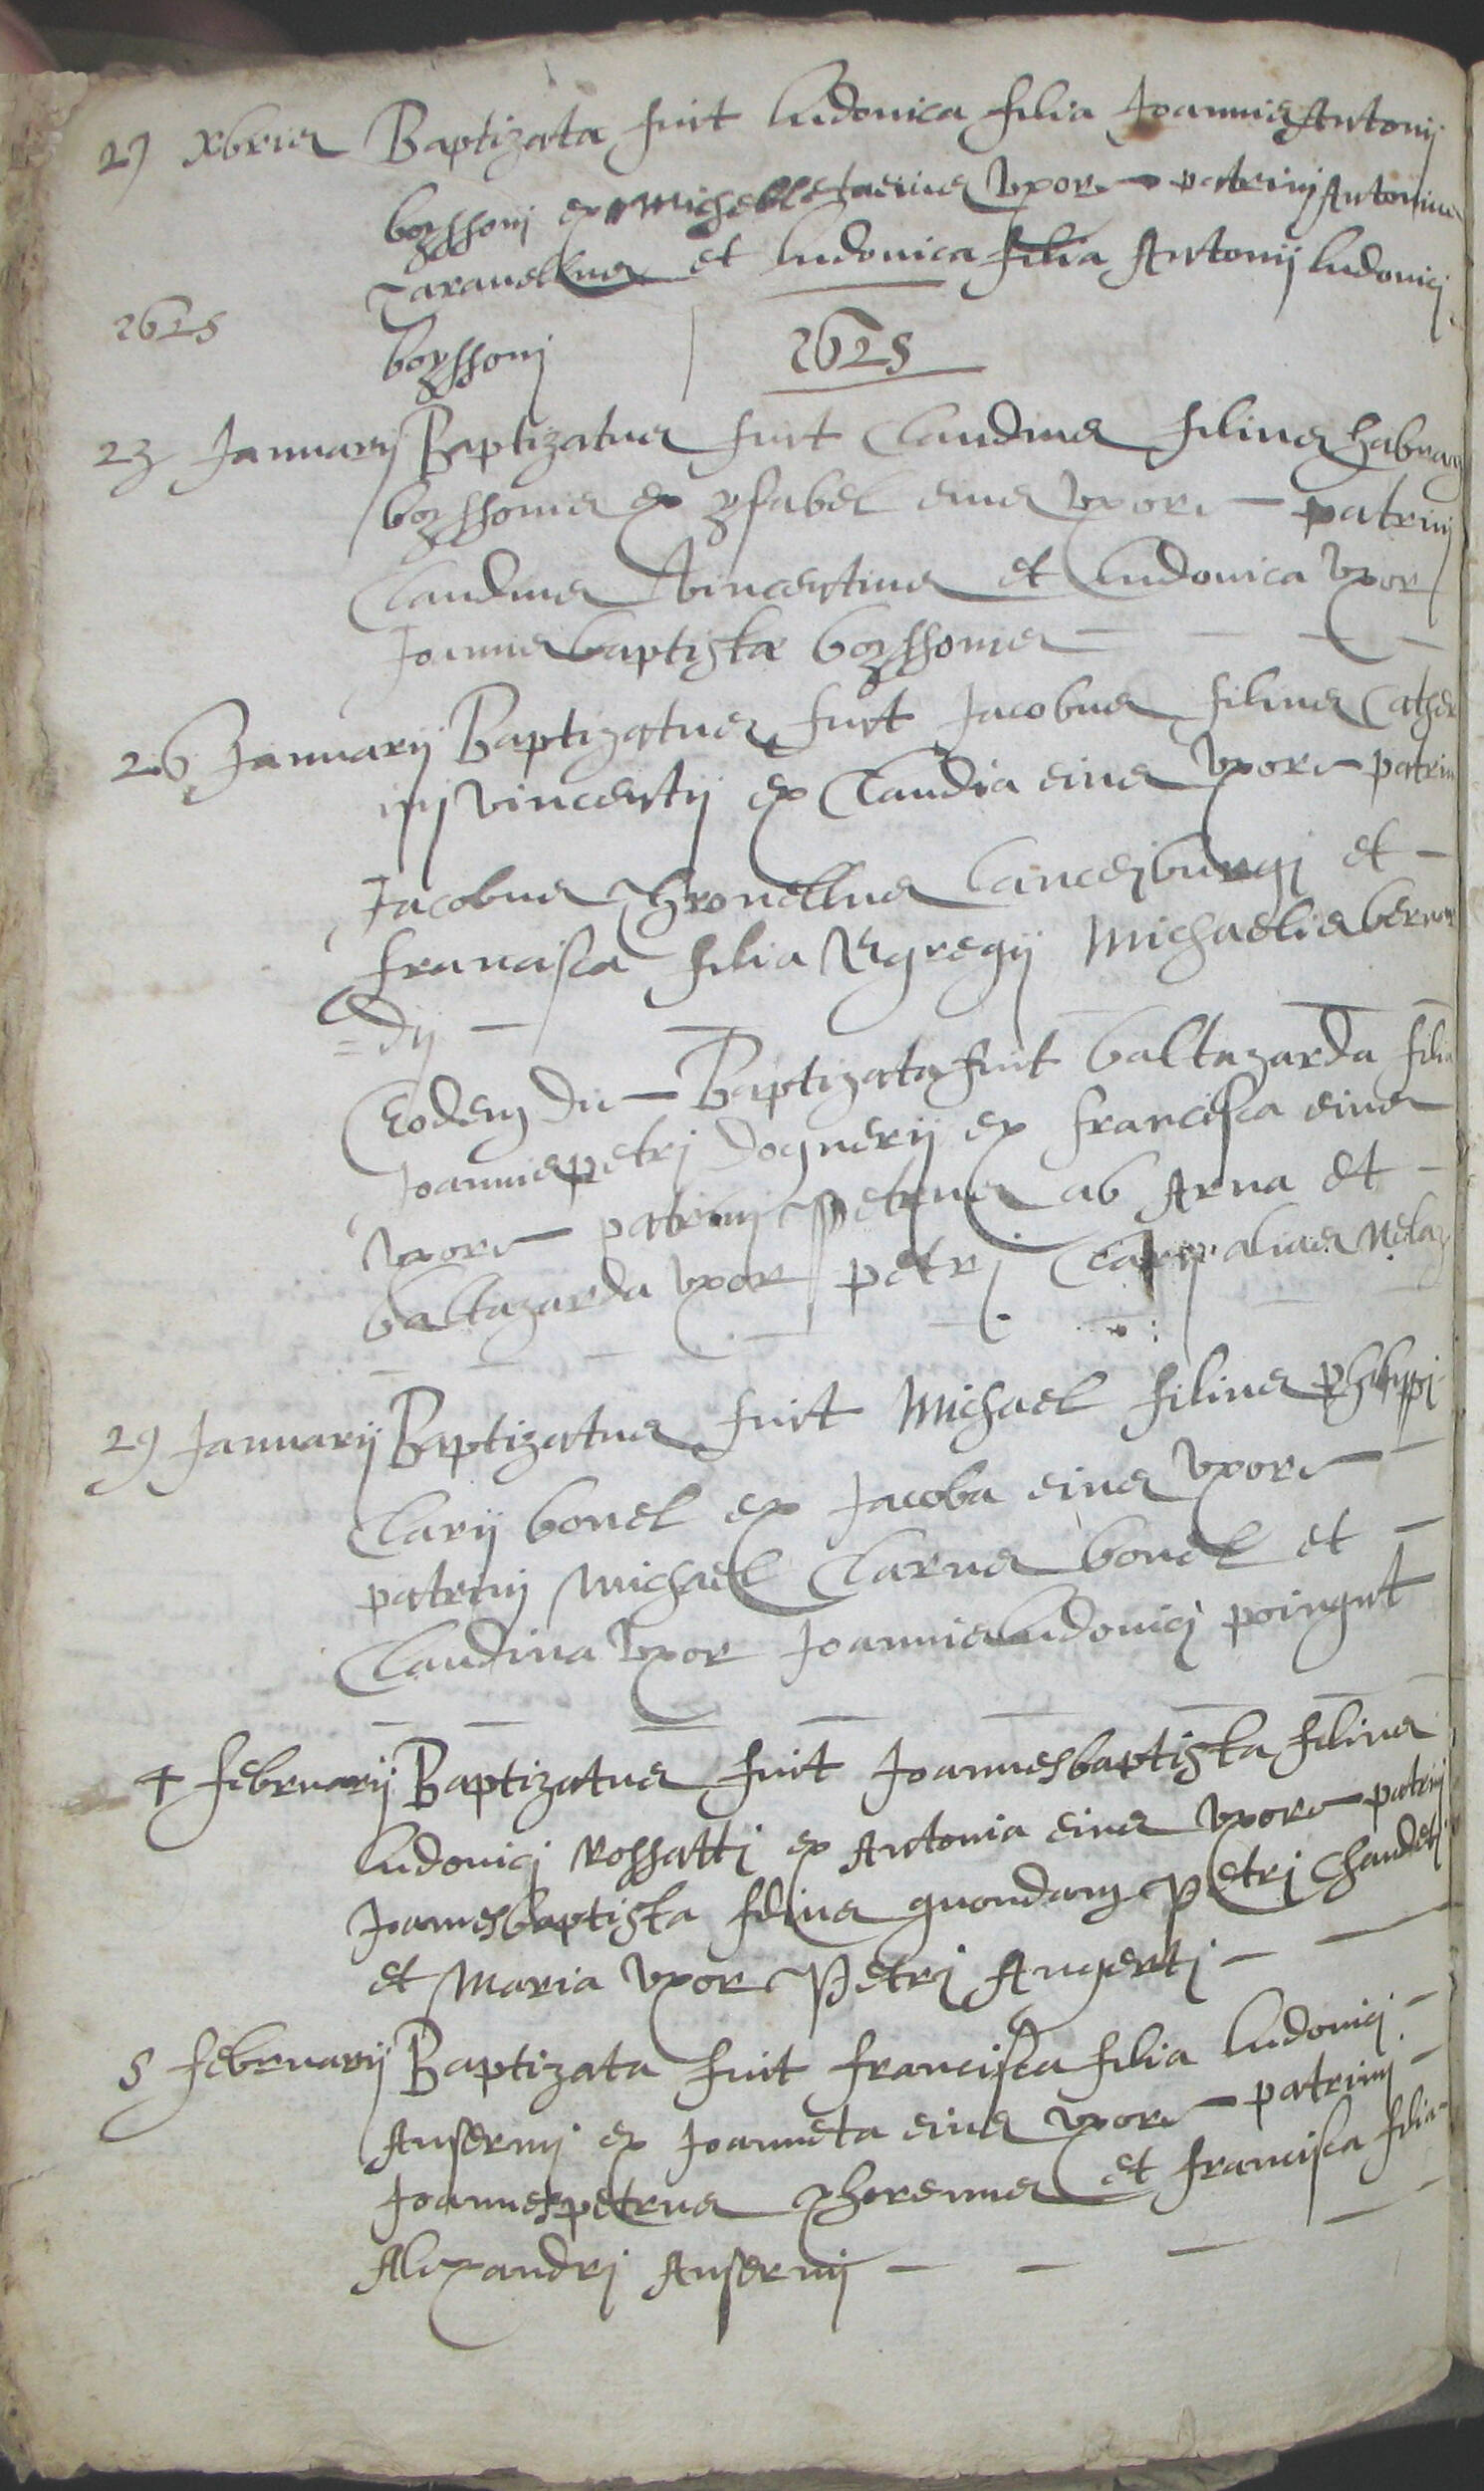 27 Xbris Baptizata fuit ludovica filia Joannis Antonij
borssonj ex Micheletta eius uxore patrinj Antonius
Taravellus et ludovica filia Antonij ludovicj
borssonj
1625
1625
23 Januarij Baptizatus fuit Claudius filius
borssonis ex ysabel eius uxore – patrinj
Claudius Vincentius et ludovica uxor
Joannisbaptistæ borssonis –
26 Januarij Baptizatus fuit Jacobus filius Cathe
inj Vincentij ex Claudia eius uxore – patrin
Jacobus lanceijburgj et –
francisca filia Egregij Michaelis bernar
=dij –
Eodem die – Baptizata fuit baltazarda filia
Joannispetrj dognerij ex francisca eius
uxore – patrinj Petrus ab Arna et –
baltazarda uxor petrj Clarij alias
29 Januarij Baptizatus fuit Michael filius philippj
Clarij bonel ex Jacoba eius uxore –
patrinj Michael Clarus bonel et –
Claudina uxor Joannisludovicj poingnt
4 februarij Baptizatus fuit Joannesbaptista filius
ludovicj Rossattj ex Antonia eius uxore – patrinj
Joannesbaptista filius quondam Petrj Chaudetj
et Maria uxor Petrj Augertj –
5 februarij Baptizata fuit francisca filia ludovicj –
Anselmj ex Joanneta eius uxore – patrinj –
Joannespetrus et francisca filia
Alexandrj Anselmj –